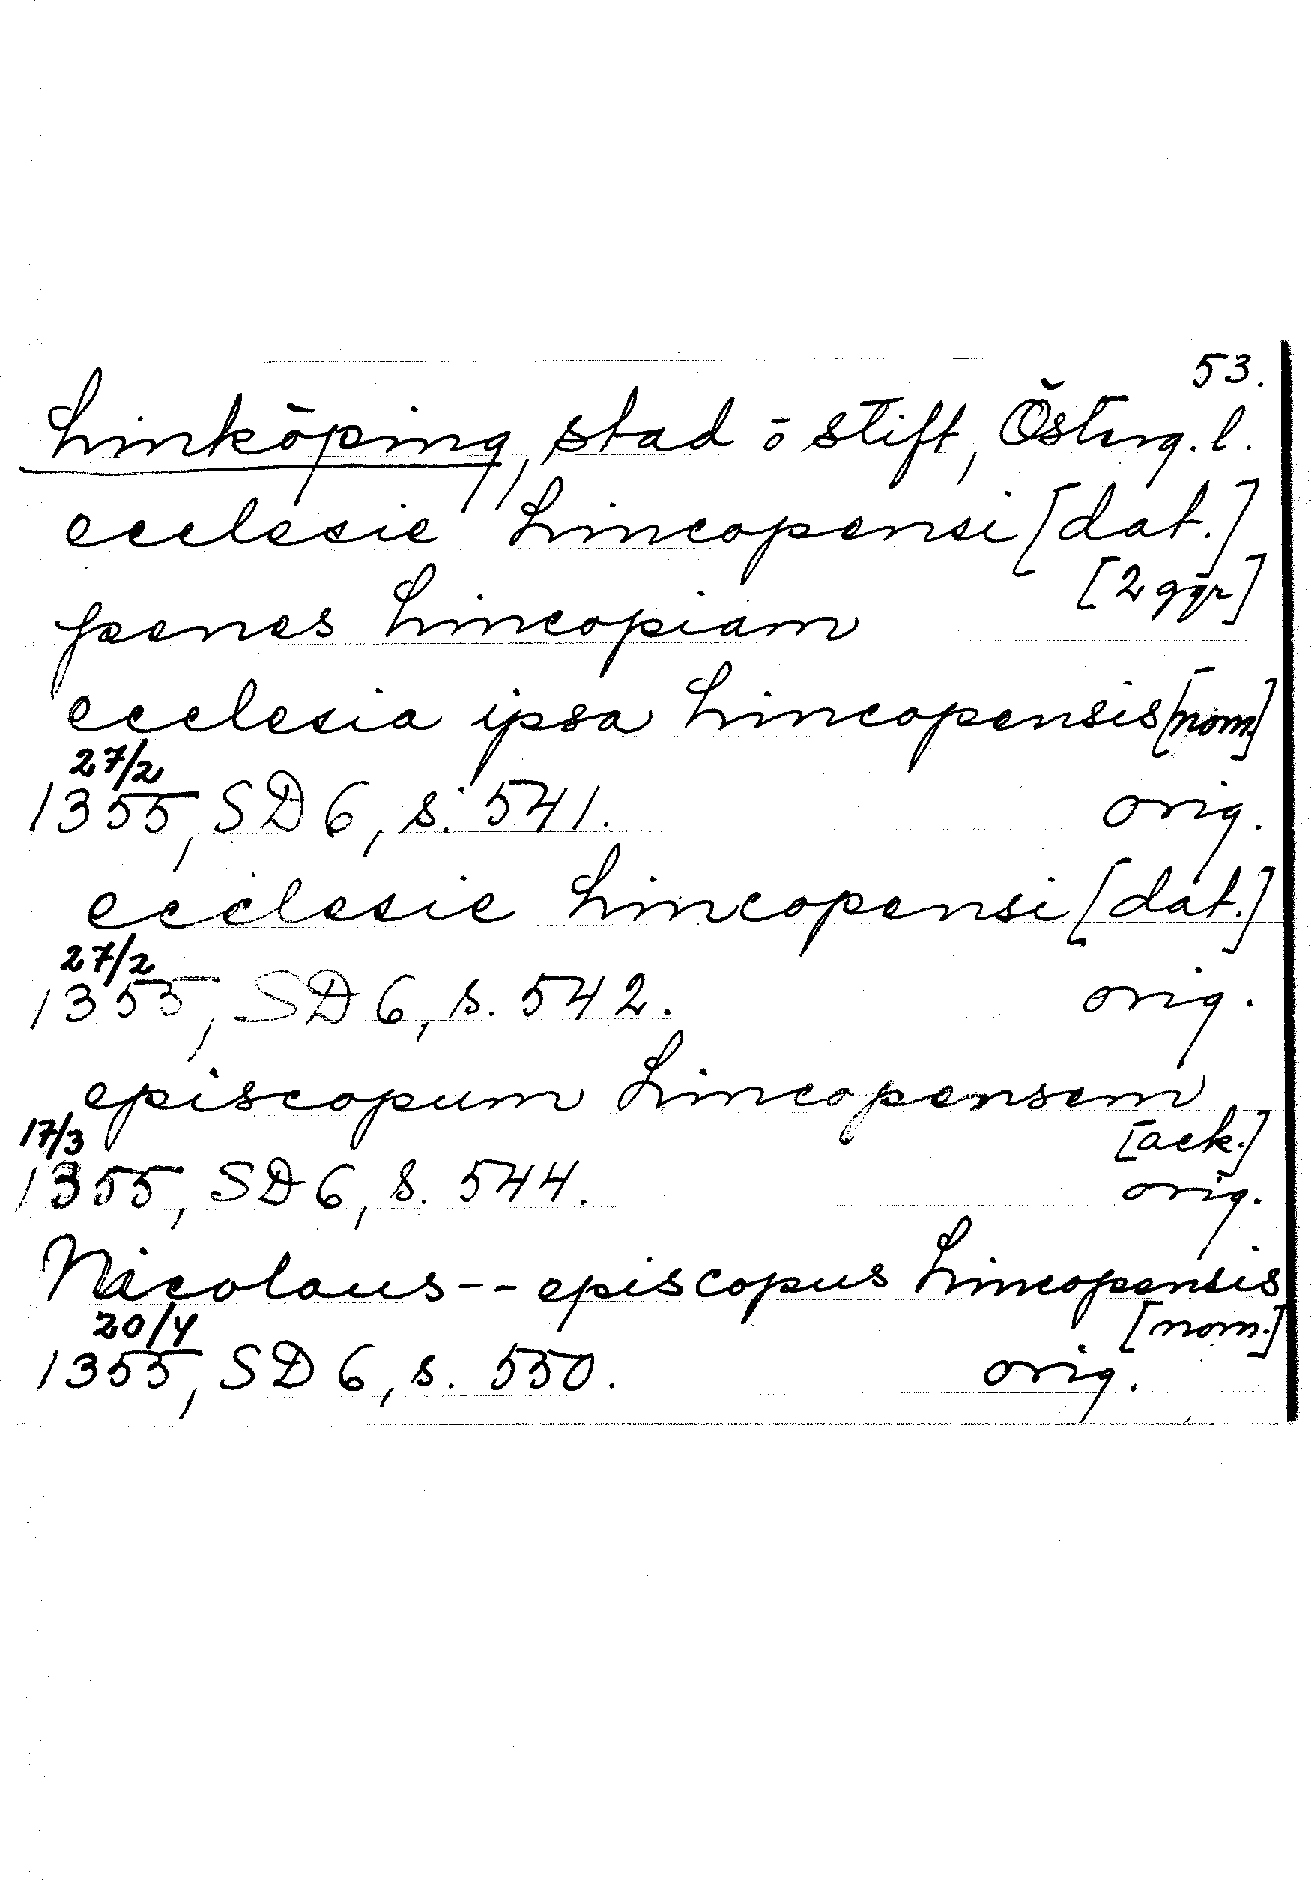 53.
Linköping, stad o stift, Österg. l.
ecclesie Lincopensi [dat.]
[2 ggr]
penes Lincopiam
ecclesia ipsa Lincopensis [nom.]
27/2
1355, SD 6, s. 541. orig.
ecclesie Lincopensi [dat.]
27/2
1355, SD 6, s. 542. orig.
episcopum Lincopensem
17/3 [ack.]
1355, SD 6, s. 544. orig.
Nicolaus -- episcopus Lincopensis
20/4 [nom.]
1355, SD 6, s. 550. orig.